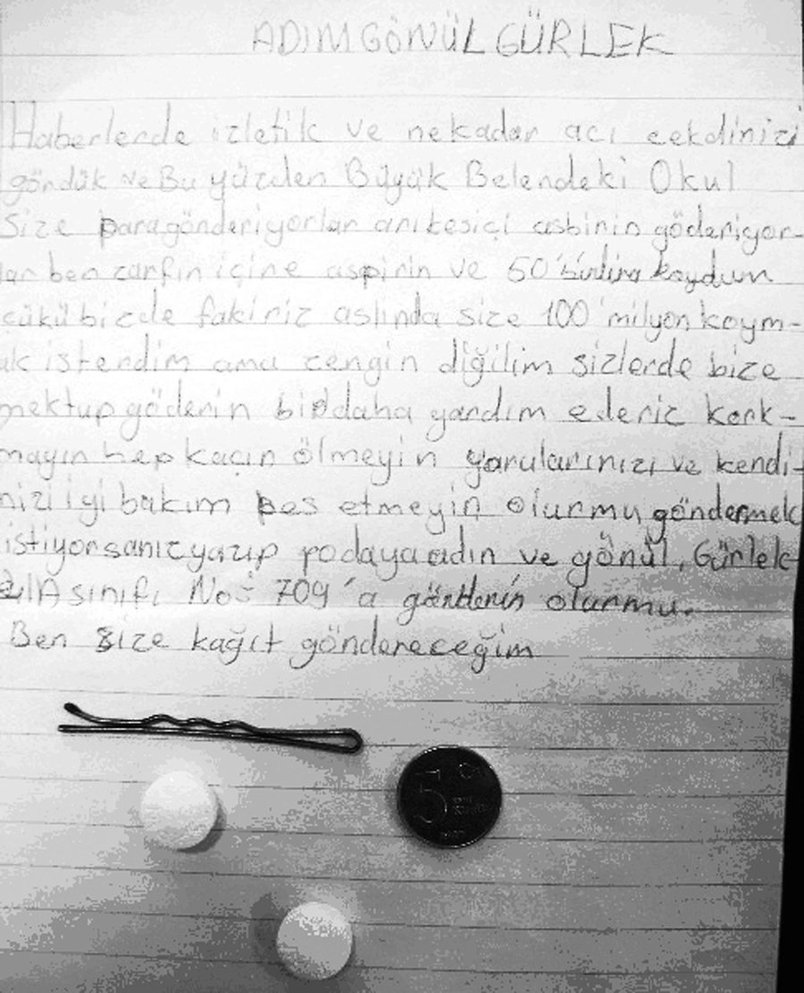 ADIM GÖNÜL GÜRLEK
Haberlerde izletik ve nekadar acı cekdinizi
gördük ve Bu yüzden Büyük Belendeki Okul
Size para gönderiyorlar arıkesici asbirin göderiyor-
lar ben zarfın içine aspirin ve 50' binlira koydum
cükü bizde fakiriz aslında size 100' milyon koym-
ak isterdim ama zengin diğilim sizlerde bize
mektup göderin birdaha yardım ederiz kork-
mayın hep kaçın ölmeyin yarularınızı ve kendi-
nizi iyi bakım pes etmeyin olurmu göndermek
istiyorsanız yazıp podaya adın ve gönül, Gürlek
2/A sınıfı No: 709'a gönderin olurmu.
Ben size kağıt göndereceğim
5